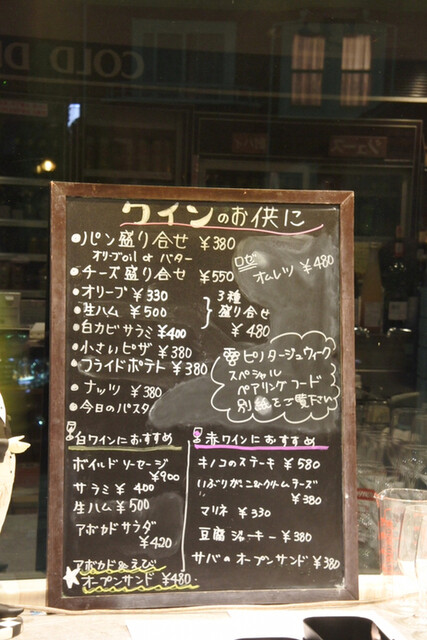 COLD D
ジュース
ワインのお供に
●パン盛り合せ ¥380
オリーブoil or バター
●チーズ盛り合せ ¥550
●オリーブ ¥330
●生ハム ¥500
●白カビサラミ ¥400
3種
盛り合せ
¥480
●小さいピザ ¥380
●フライドポテト ¥380
●ナッツ ¥380
●今日のパスタ
ロゼ
オムレツ ¥480
ピノタージュウィーク
スペシャル
ペアリングフード
別紙をご覧下さい
白ワインにおすすめ
ボイルドソーセージ
¥900
サラミ ¥400
生ハム ¥500
アボカドサラダ
¥420
アボカド&えび
オープンサンド ¥480.
赤ワインにおすすめ
キノコのステーキ ¥580
いぶりがっこ&クリームチーズ
¥380
マリネ ¥330
豆腐ジャーキー ¥380
サバのオープンサンド ¥380